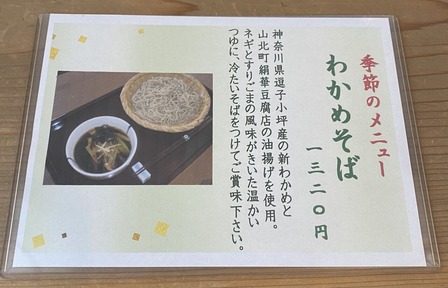 季節のメニュー
わかめそば
一三二〇円
神奈川県逗子小坪産の新わかめと
山北町絹華豆腐店の油揚げを使用。
ネギとすりごまの風味がきいた温かい
つゆに、冷たいそばをつけてご賞味下さい。